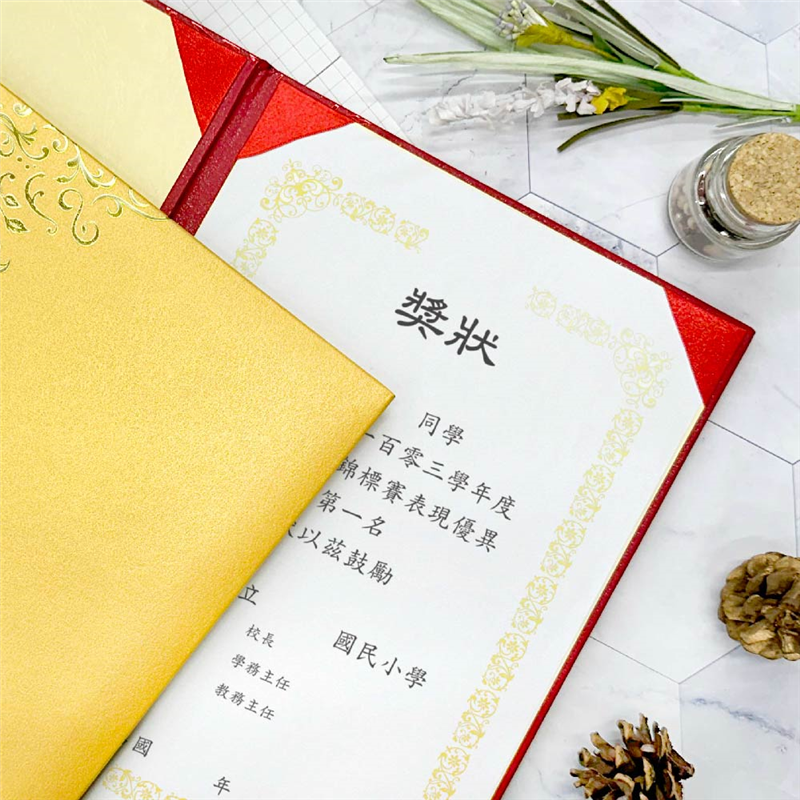 獎狀
同學
一百零三學年度
錦標賽表現優異
第一名
以茲鼓勵
立
國民小學
校長
學務主任
教務主任
國
年